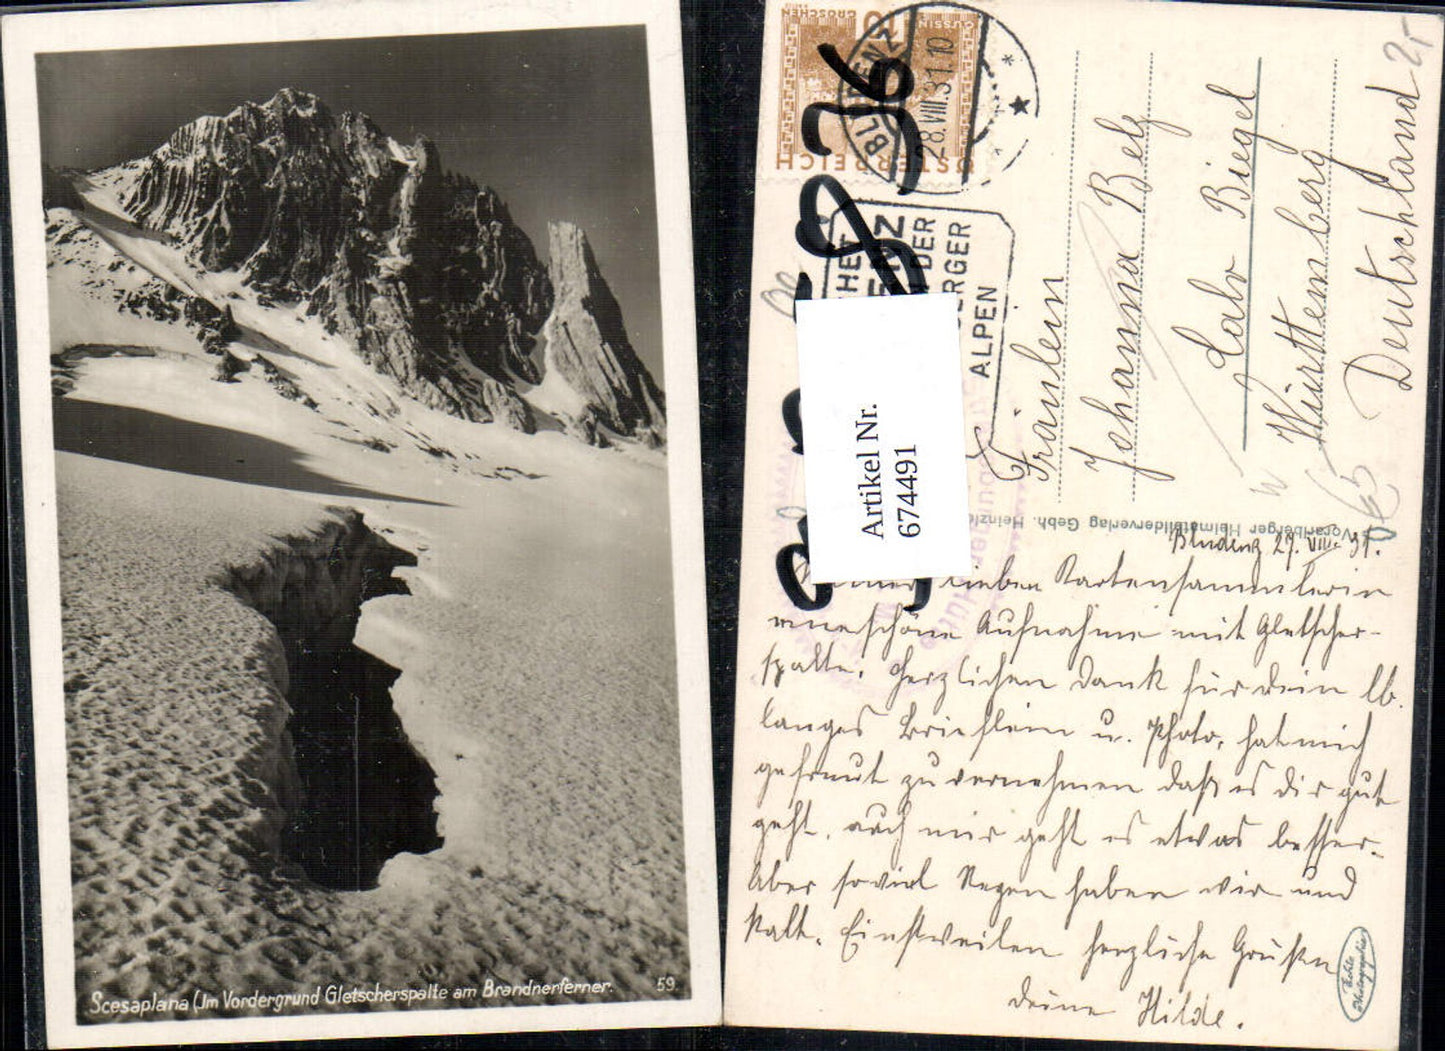 Scesaplana (Im Vordergrund Gletscherspalte am Brandnerferner.
59.
ÖSTERREICH
GROSCHEN
BLUDENZ
28.VIII.31.10
DER
ALPEN
Artikel Nr.
674491
25
Fräulein
Johanna Belz
Calw Biegel
Württemberg
Deutschland
Vorarlberger Heimatbilderverlag Gebh. Heinzle
Bludenz 27. VIII. 31.
lieben Kartensammlerin
eine schöne Aufnahme mit Gletscher-
spalte. Herzlichen Dank für Dein lb.
langes Brieflein u. Photo, hat mich
gefreut zu vernehmen daß es dir gut
geht, auch mir geht es etwas besser.
Aber soviel Regen haben wir und
kalt. Einstweilen herzliche Grüße
deine Hilde.
Echte Photographie